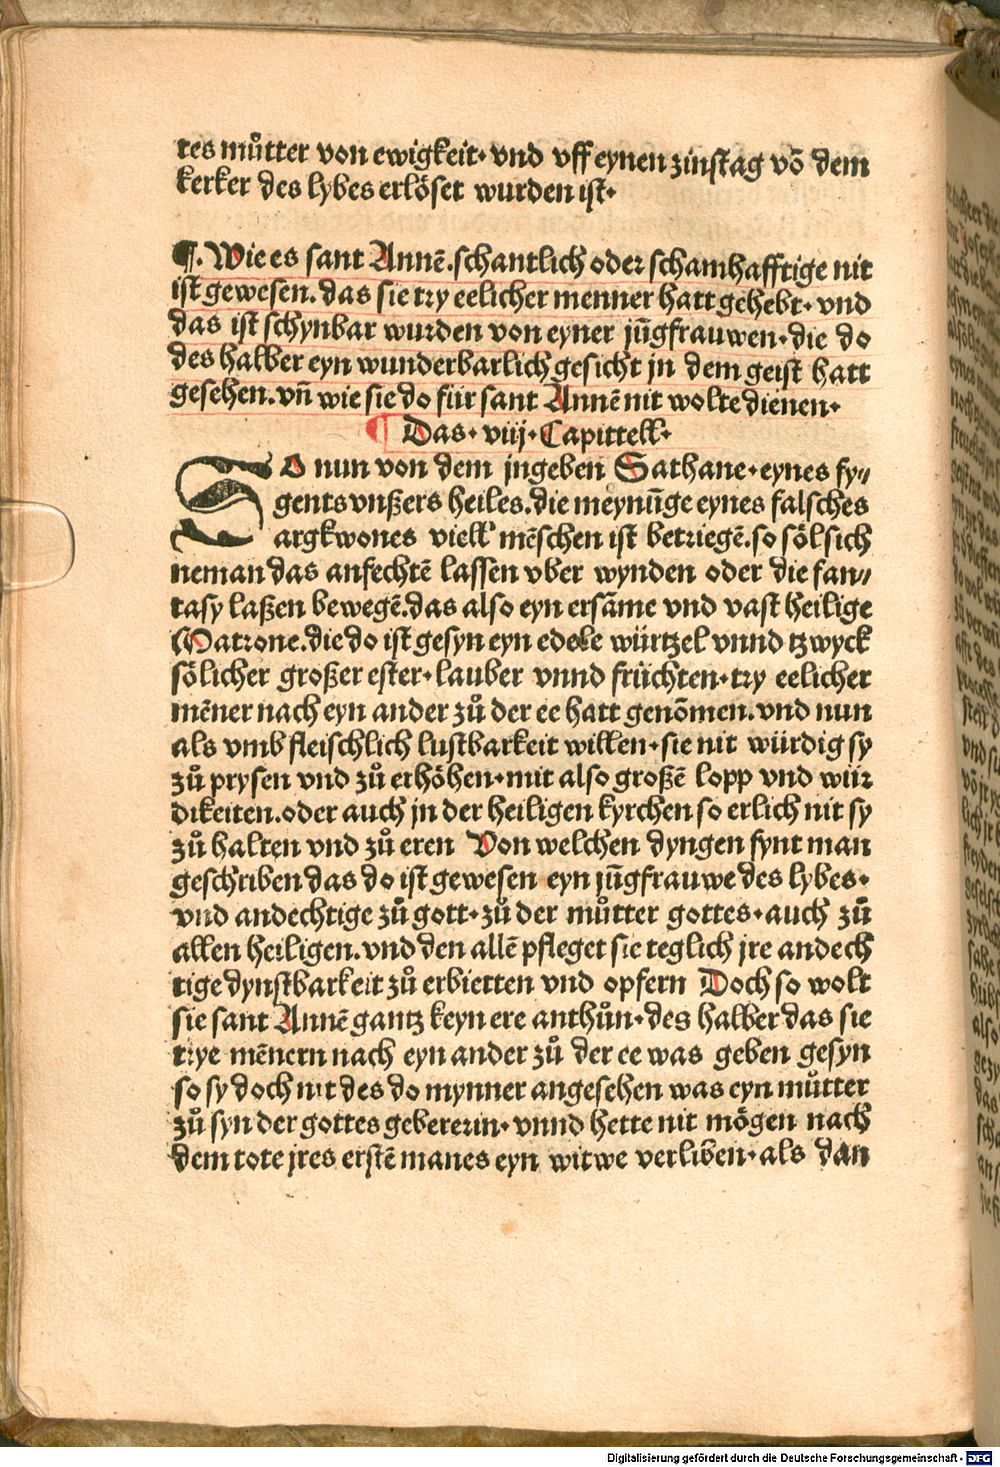 tes můtter von ewigkeit. vnd vff eynen zinstag vō dem
kerker des lybes erlöset wurden ist.
¶. Wie es sant Annē. schantlich oder schamhafftige nit
ist gewesen. das sie try eelicher menner hatt gehebt. vnd
das ist schynbar wurden von eyner jūgfrauwen. die do
des halber eyn wunderbarlich gesicht jn dem geist hatt
gesehen. vn̄ wie sie do für sant Annē nit wolte dienen.
¶ Das. viij. Capittell.
SO nun von dem jngeben Sathane. eynes fy⸗
gents vnßers heiles. die meynūge eynes falsches
argkwones viell mēschen ist betriegē. so söl sich
neman das anfechtē lassen vber wynden oder die fan⸗
tasy laßen bewegē. das also eyn ersāme vnd vast heilige
Matrone. die do ist gesyn eyn edele würtzel vnnd tzwyck
sölicher großer ester. lauber vnnd früchten. try eelicher
mēner nach eyn ander zů der ee hatt genōmen. vnd nun
als vmb fleischlich lustbarkeit willen. sie nit würdig sy
zů prysen vnd zů erhöhen. mit also großē lopp vnd wür
dikeiten. oder auch jn der heiligen kyrchen so erlich nit sy
zů halten vnd zů eren Von welchen dyngen fynt man
geschriben das do ist gewesen eyn jūgfrauwe des lybes.
vnd andechtige zů gott. zů der můtter gottes. auch zů
allen heiligen. vnd den allē pfleget sie teglich jre andech
tige dynstbarkeit zů erbietten vnd opfern Doch so wolt
sie sant Annē gantz keyn ere anthůn. des halber das sie
trye mēnern nach eyn ander zů der ee was geben gesyn
so sy doch nit des do mynner angesehen was eyn můtter
zů syn der gottes gebererin. vnnd hette nit mögen nach
dem tote jres erstē manes eyn witwe verliben. als dan
Digitalisierung gefördert durch die Deutsche Forschungsgemeinschaft - DFG